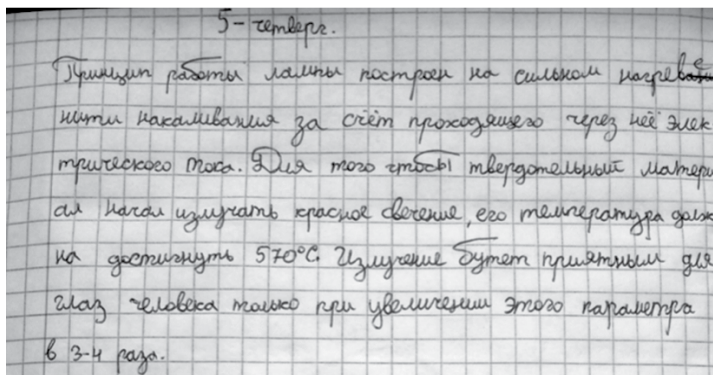 5 - четверг.
Принцип работы лампы построен на сильном нагреве
нити накаливания за счёт проходящего через неё элек
трического тока. Для того чтобы твердотельный матери
ал начал излучать красное свечение, его температура долж
на достигнуть 570°C. Излучение бутет приятным для
глаз человека только при увеличении этого параметра
в 3-4 раза.